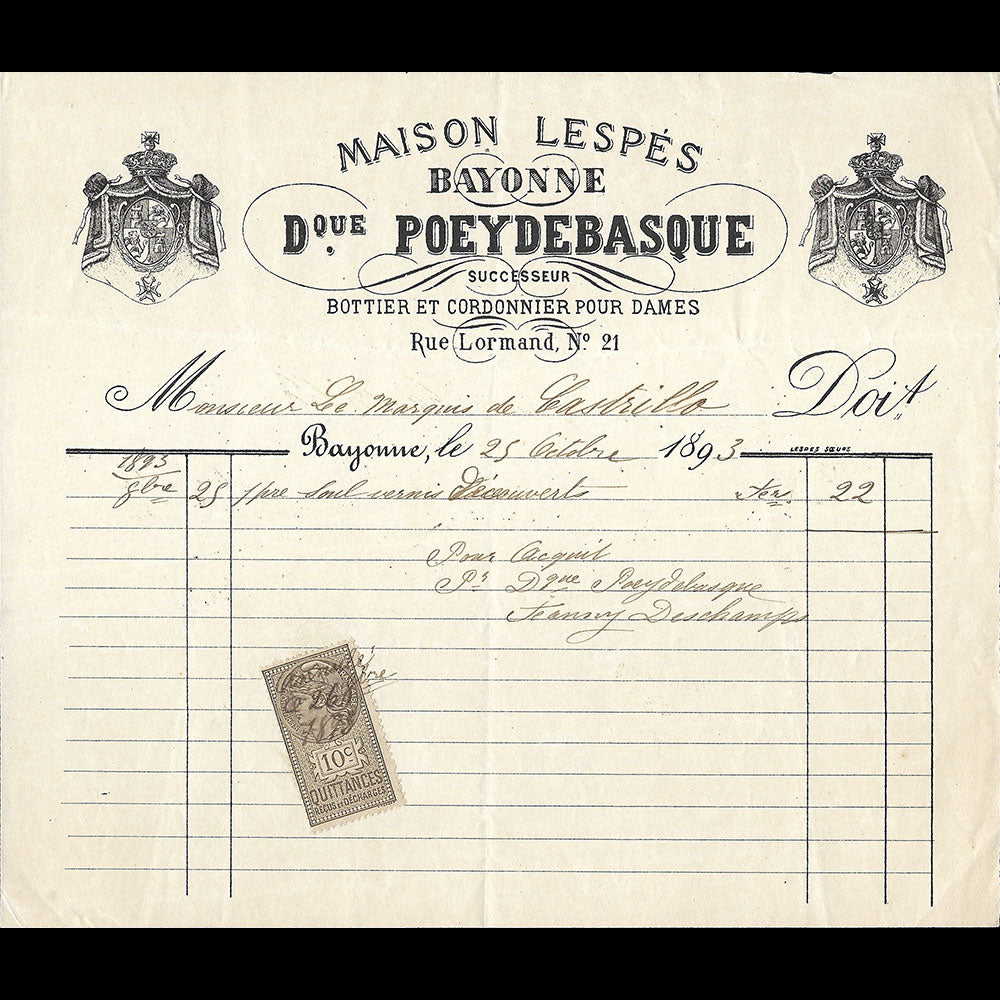 MAISON LESPÉS
BAYONNE
Dque. POEYDEBASQUE
SUCCESSEUR
BOTTIER ET CORDONNIER POUR DAMES
Rue Lormand, No 21
Monsieur Le Marquis de Castrillo Doit
Bayonne, le 25 Octobre 1893
LESPES SŒURS
1893
8bre 25 1 pre Soul vernis découverts frs 22
Pour Acquit
Pr Dque Poeydebasque
Jeanny Deschamps
10c
QUITTANCES
REÇUS ET DÉCHARGES